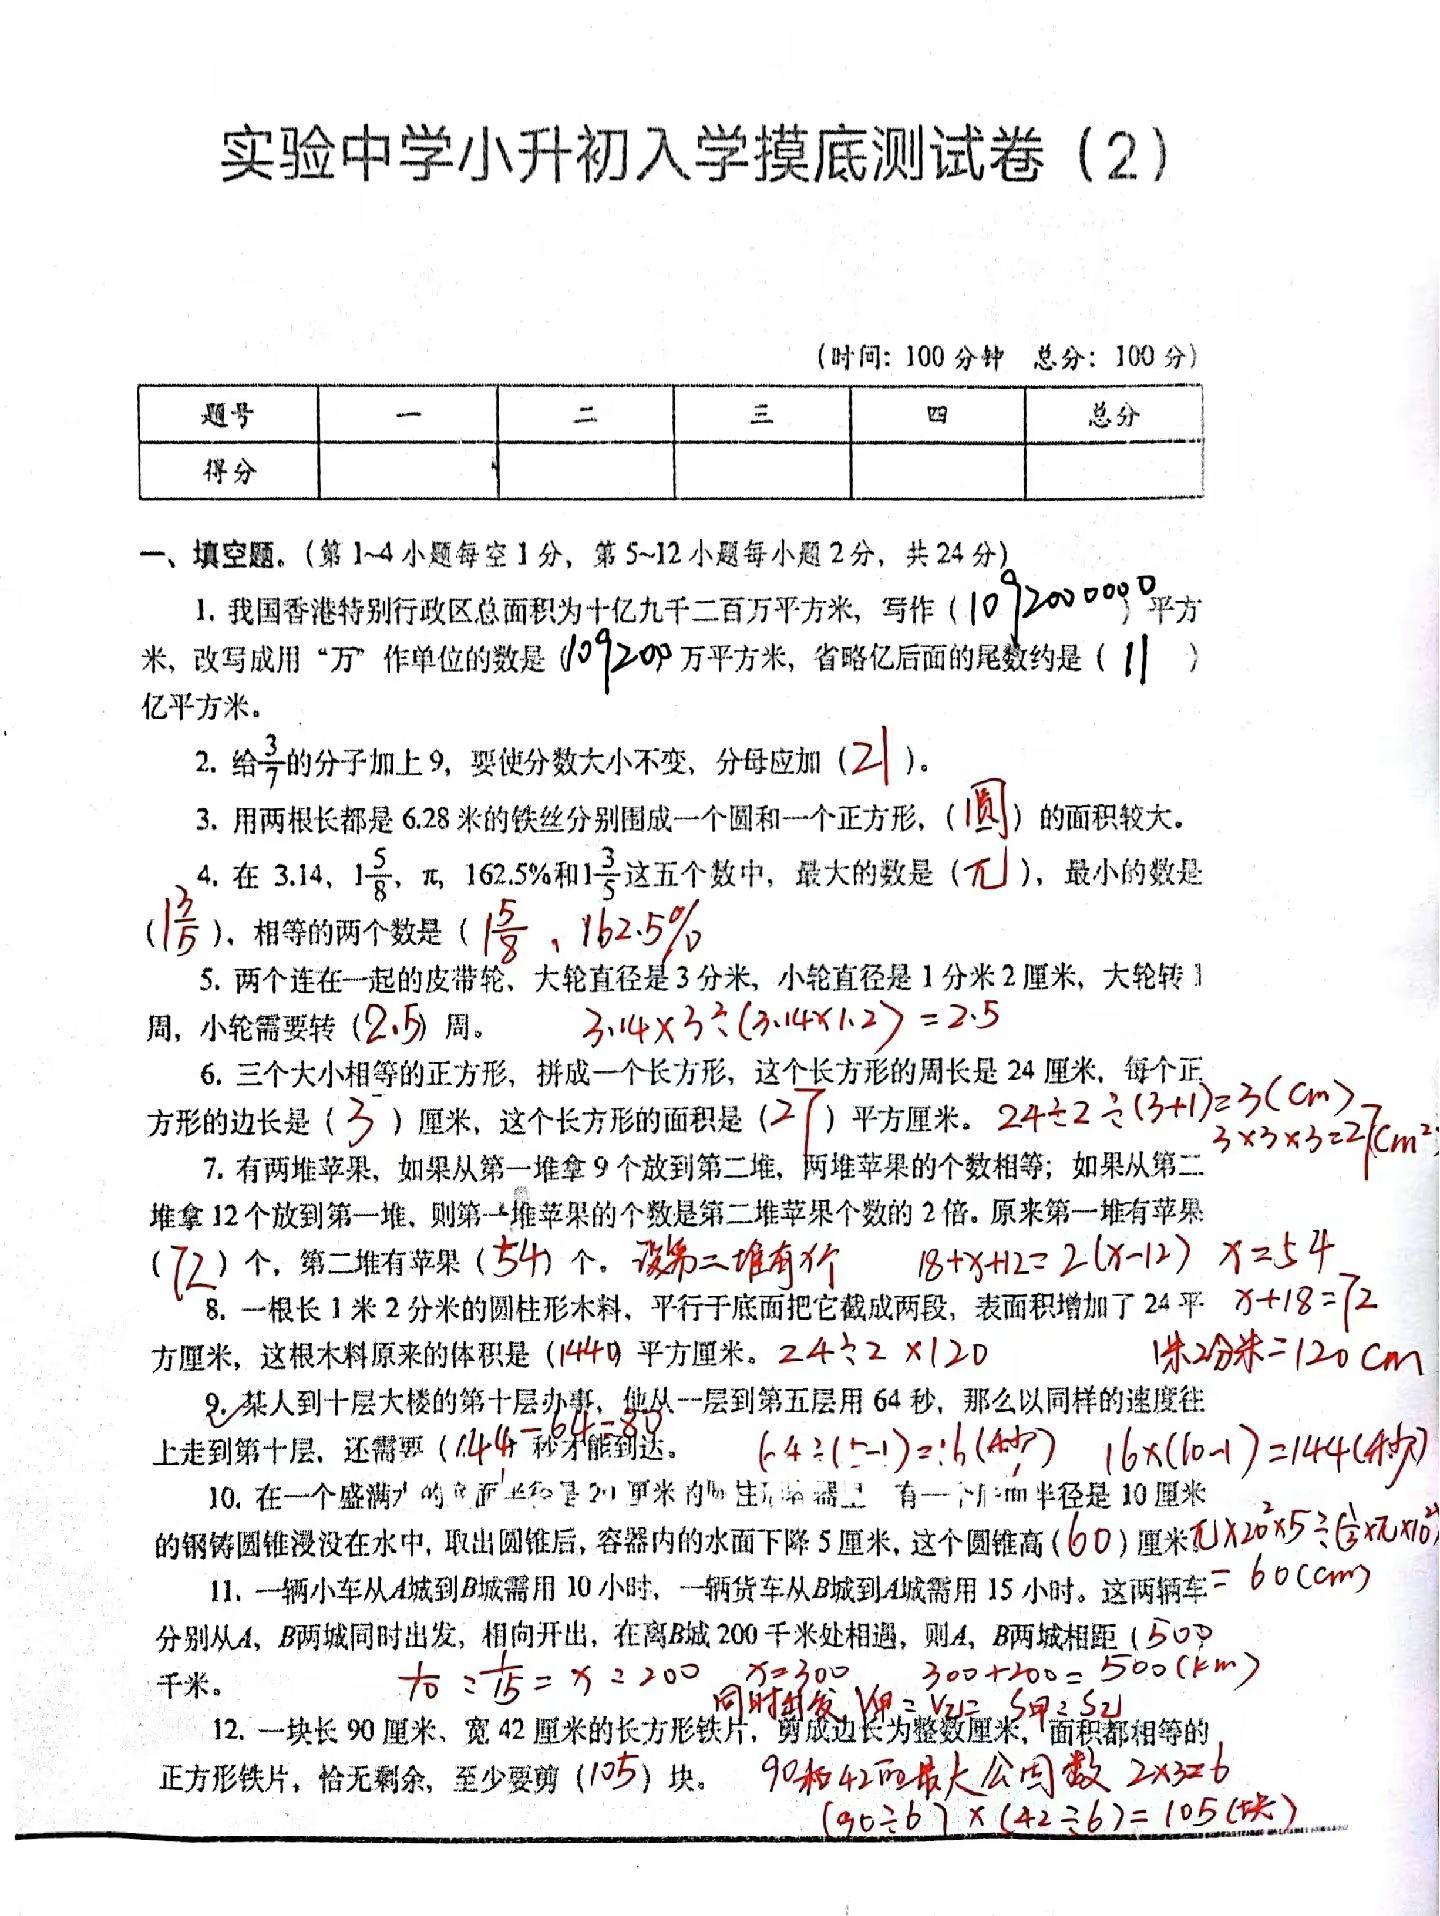 实验中学小升初入学摸底测试卷（2）
（时间：100分钟 总分：100分）
题号 一 二 三 四 总分
得分
一、填空题。（第1~4小题每空1分，第5~12小题每小题2分，共24分）
1. 我国香港特别行政区总面积为十亿九千二百万平方米，写作（1092000000）平方
米，改写成用“万”作单位的数是（109200万平方米，省略亿后面的尾数约是（11）
亿平方米。
2. 给3/7的分子加上9，要使分数大小不变，分母应加（21）。
3. 用两根长都是6.28米的铁丝分别围成一个圆和一个正方形，（圆）的面积较大。
4. 在 3.14，1 5/8，π，162.5%和1 3/5这五个数中，最大的数是（π），最小的数是
（1 3/5），相等的两个数是（1 5/8、162.5%
5. 两个连在一起的皮带轮，大轮直径是3分米，小轮直径是1分米2厘米，大轮转1
周，小轮需要转（2.5）周。 3.14×3÷(3.14×1.2)=2.5
6. 三个大小相等的正方形，拼成一个长方形，这个长方形的周长是24厘米，每个正
方形的边长是（3）厘米，这个长方形的面积是（27）平方厘米。 24÷2÷(3+1)=3(cm)
3×3×3=27(cm²)
7. 有两堆苹果，如果从第一堆拿9个放到第二堆，两堆苹果的个数相等；如果从第二
堆拿12个放到第一堆，则第一堆苹果的个数是第二堆苹果个数的2倍。原来第一堆有苹果
（72）个，第二堆有苹果（54）个。 设第二堆有x个 18+x+12=2(x-12) x=54
x+18=72
8. 一根长1米2分米的圆柱形木料，平行于底面把它截成两段，表面积增加了24平
方厘米，这根木料原来的体积是（1440）平方厘米。 24÷2×120 1米2分米=120cm
9. 某人到十层大楼的第十层办事，他从一层到第五层用64秒，那么以同样的速度往
144-64=80
上走到第十层，还需要（ ）秒才能到达。 64÷(5-1)=16(秒) 16×(10-1)=144(秒)
10. 在一个盛满水的底面半径是20厘米的圆柱形容器里 有一个底面半径是10厘米
的钢铸圆锥浸没在水中，取出圆锥后，容器内的水面下降5厘米，这个圆锥高（60）厘米 π×20²×5÷(1/3×π×10²)
=60(cm)
11. 一辆小车从A城到B城需用10小时，一辆货车从B城到A城需用15小时。这两辆车
分别从A，B两城同时出发，相向开出，在离B城200千米处相遇，则A，B两城相距（500）
千米。 1/10：1/15=x：200 x=300 300+200=500(km)
同时出发 V甲：V乙=S甲：S乙
12. 一块长90厘米、宽42厘米的长方形铁片，剪成边长为整数厘米，面积都相等的
正方形铁片，恰无剩余，至少要剪（105）块。 90和42的最大公因数 2×3=6
(90÷6)×(42÷6)=105(块)